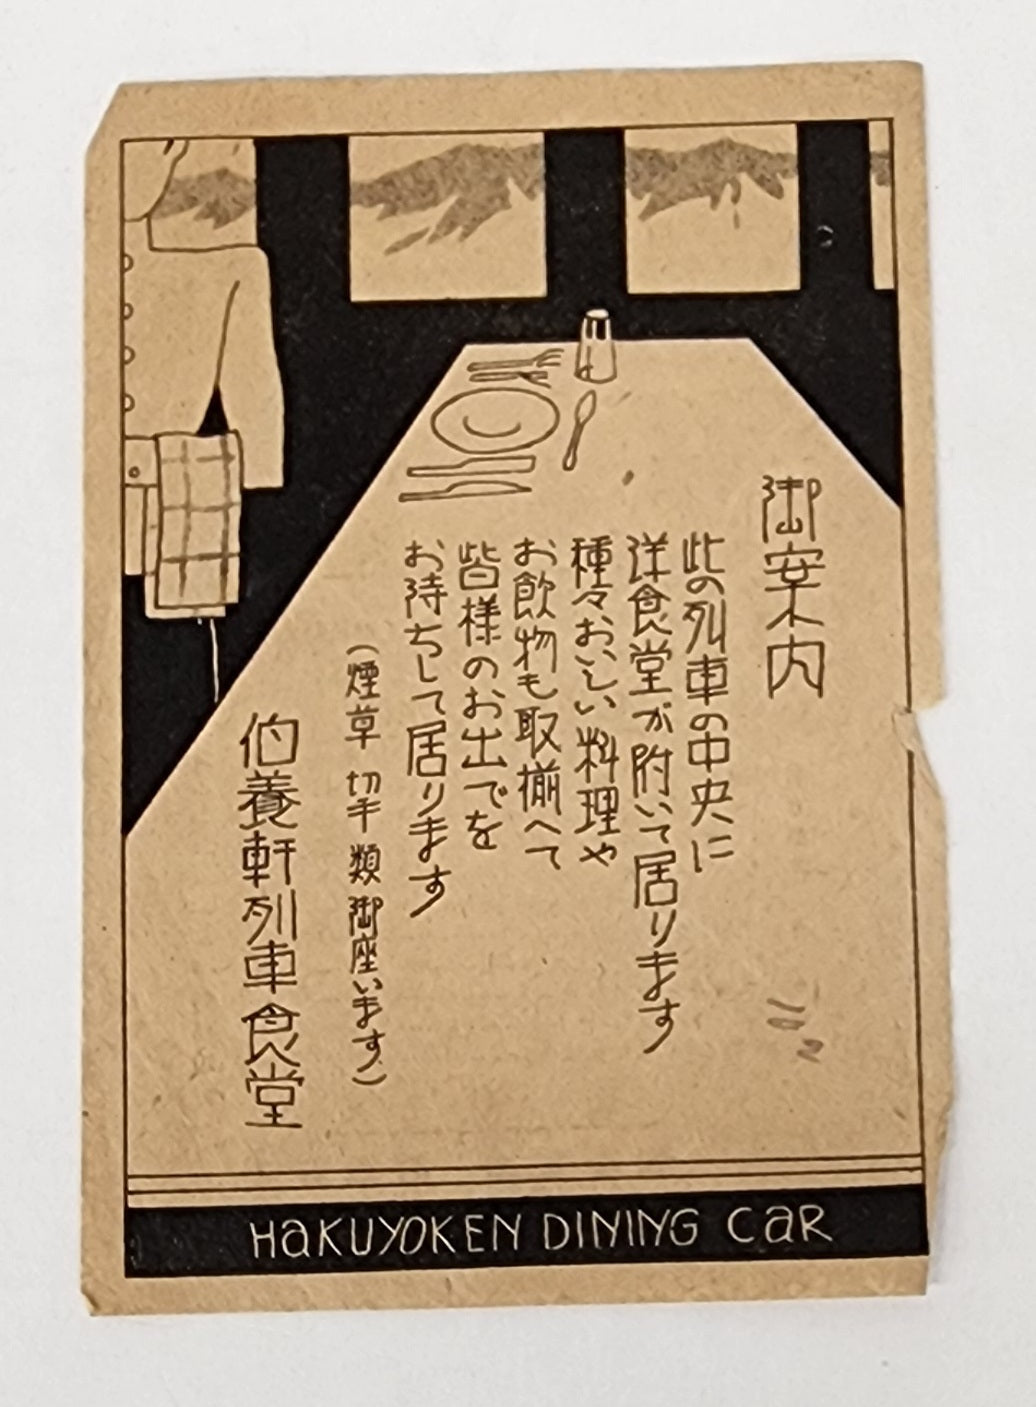 御案内
此の列車の中央に
洋食堂が附いて居ります
種々おいしい料理や
お飲物も取揃へて
皆様のお出でを
お待ちして居ります
（煙草 切手 類御座います）
伯養軒列車食堂
HAKUYOKEN DINING CAR